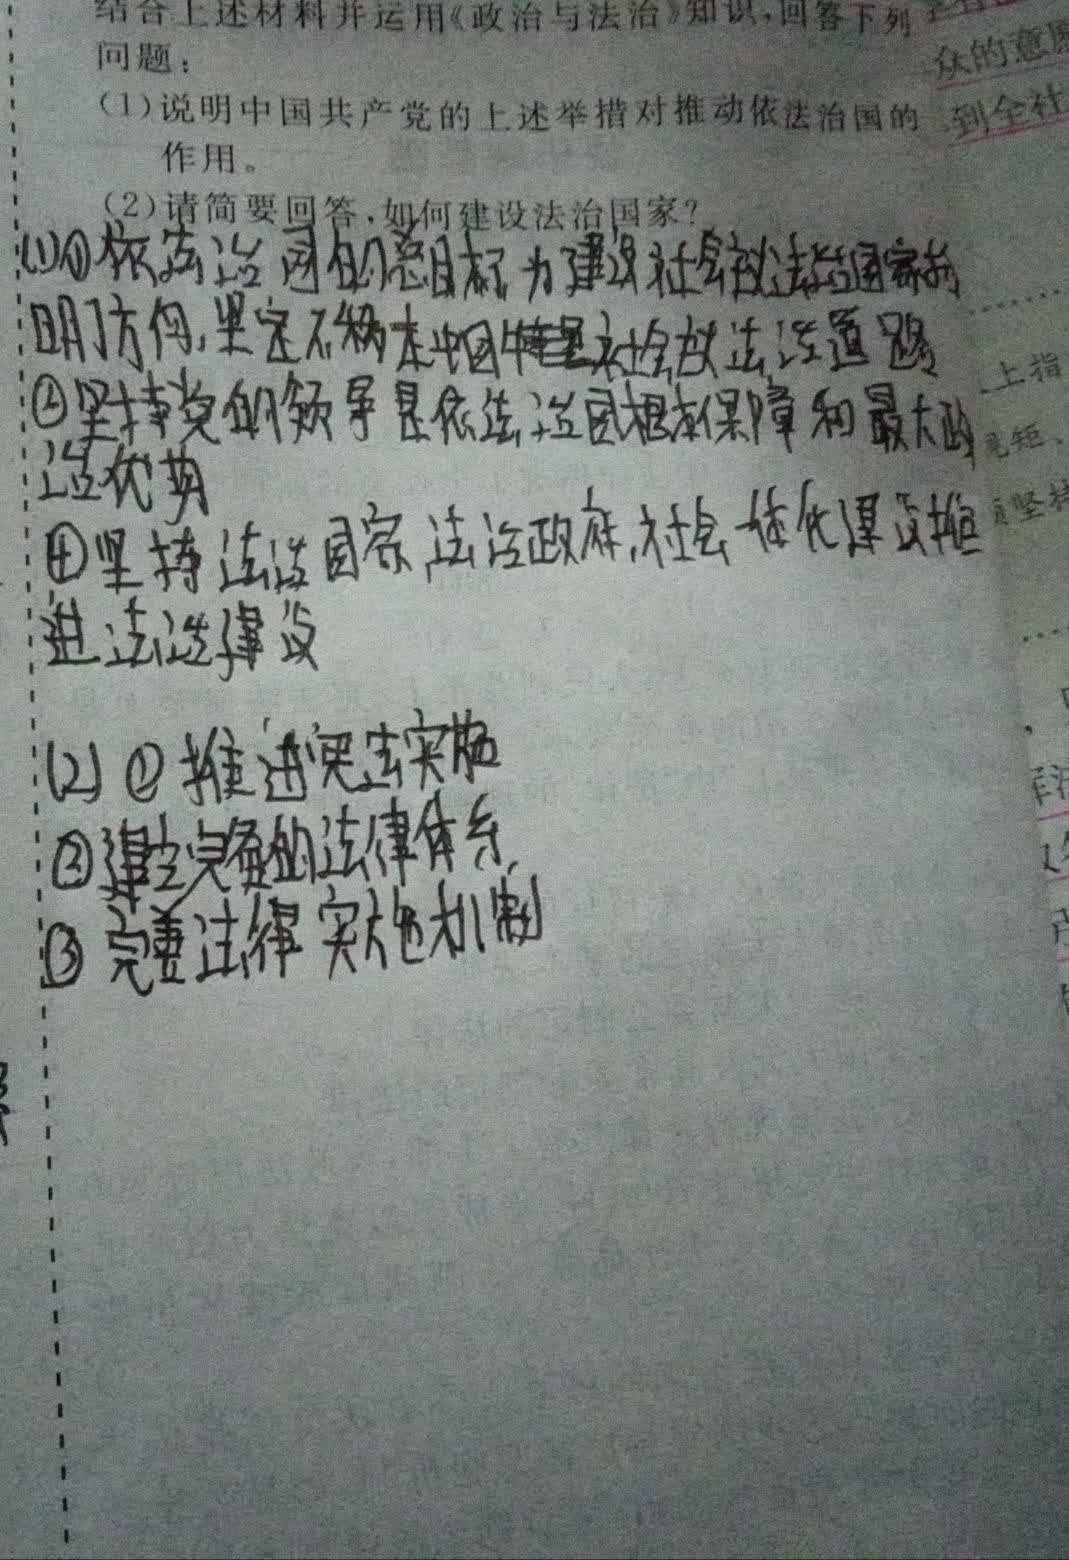 结合上述材料并运用《政治与法治》知识,回答下列
问题:
(1)说明中国共产党的上述举措对推动依法治国的
作用。
(2)请简要回答,如何建设法治国家?
(1)①依法治国的总目标为建设社会主义法治国家指
明了方向,坚定不移走中国特色社会主义法治道路
②坚持党的领导是依法治国根本保障和最大政
治优势
④坚持法治国家,法治政府,社会一体化建设推
进法治建设
(2)①推进宪法实施
②建立完备的法律体系,
③完善法律实施机制
众的意愿
到全社
上措
矩、
坚持